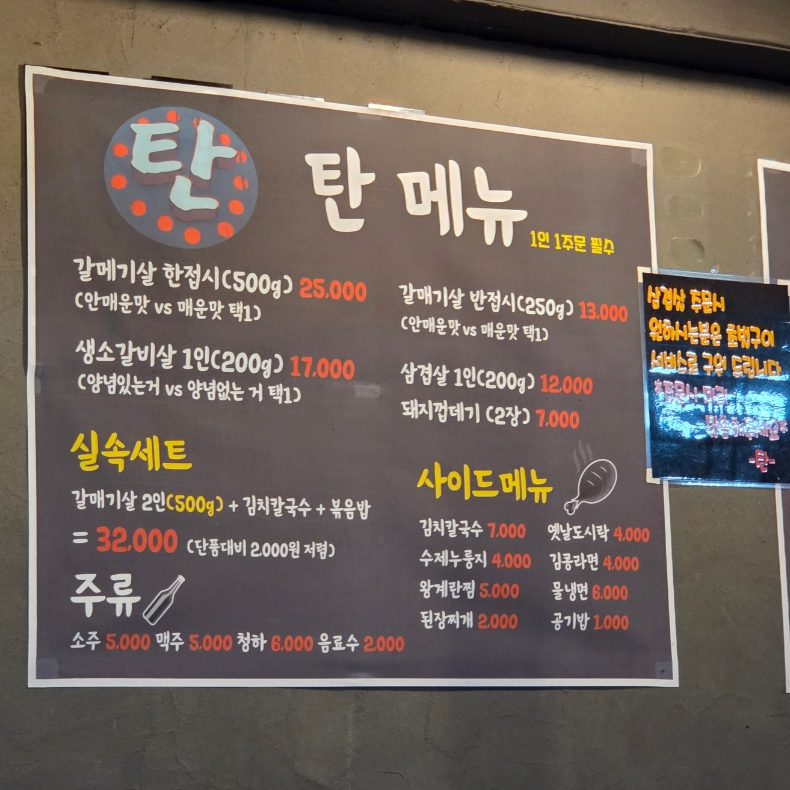 탄
탄 메뉴
1인 1주문 필수
갈메기살 한접시(500g) 25.000
(안매운맛 vs 매운맛 택1)
생소갈비살 1인(200g) 17.000
(양념있는거 vs 양념없는 거 택1)
갈매기살 반접시(250g) 13.000
(안매운맛 vs 매운맛 택1)
삼겹살 1인(200g) 12.000
돼지껍데기 (2장) 7.000
실속세트
갈매기살 2인(500g) + 김치칼국수 + 볶음밥
= 32.000 (단품대비 2.000원 저렴)
주류
소주 5.000 맥주 5.000 청하 6.000 음료수 2.000
사이드메뉴
김치칼국수 7.000
수제누룽지 4.000
왕계란찜 5.000
된장찌개 2.000
옛날도시락 4.000
김콩라면 4.000
물냉면 6.000
공기밥 1.000
삼겹살 주문시
원하시는분은 초벌구이
서비스로 구워 드립니다
-탄-